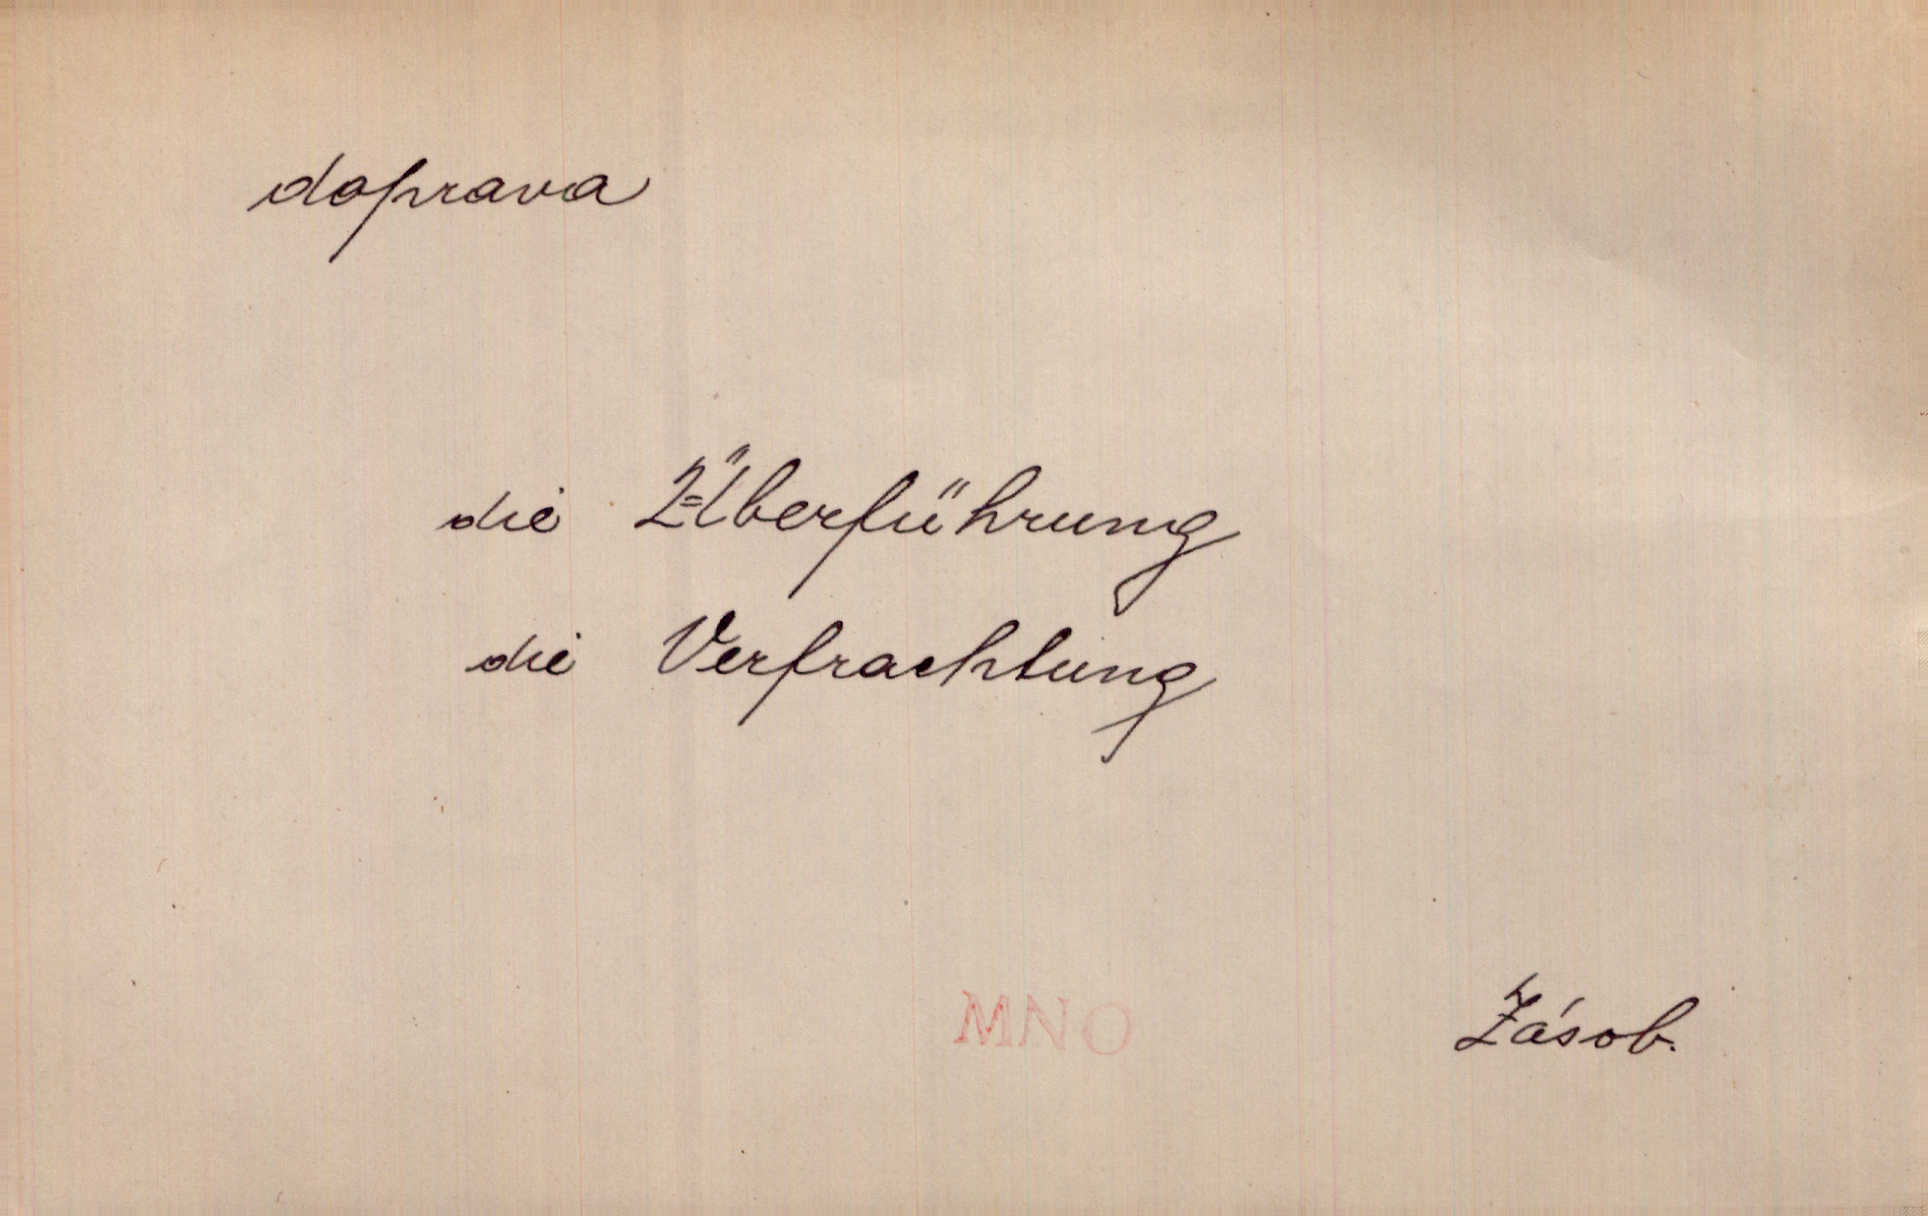 doprava
die Überführung
die Verfrachtung
MNO
Zásob.